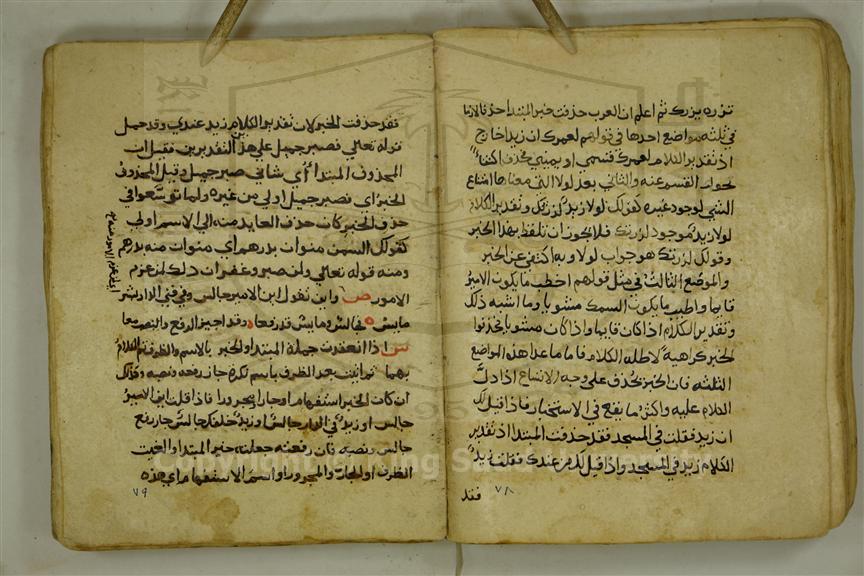 تزره يزرك ثم اعلم ان العرب حذفت خبر المبتدا حذفا لازما
في ثلثه مواضع احدها في قولهم لعمرك ان زيدا خارج
اذ تقدير الكلام لعمرك قسمي او يميني فحذف اكتفاء
بجواب القسم عنه والثاني بعد لولا التي معناها امتناع
الشي لوجود غيره كقولك لولا زيد لزرتك وتقدير الكلام
لولا زيد موجود لزرتك فلا يجوز ان تلفظ بهذا الخبر
وقولك لزرتك هو جواب لولا وبه اكتفي عن الخبر
والموضع الثالث في مثل قولهم اخطب ما يكون الامير
قايما واطيب ما يكون السمك مشويا وما اشبه ذلك
وتقدير الكلام اذا كان قايما واذا كان مشويا فحذفوا
الخبر كراهية لاطاله الكلام فاما ما عدا هذه المواضع
الثلثه فان الخبر يحذف على وجه الاتساع اذا دل
الكلام عليه واكثر ما يقع في الاستخبار فاذا قيل لك
اين زيد فقلت في المسجد فقد حذفت المبتدا اذ تقدير
الكلام زيد في المسجد واذا قيل لك من عندك فقلت زيد
فقد
٧٨
فقد حذفت الخبر لان تقدير الكلام زيد عندي وقد حمل
قوله تعالى فصبر جميل على هذين التقديرين فقيل ان
المحذوف المبتدا أي شاني صبر جميل وقيل المحذوف
الخبر أي فصبر جميل اولى من غيره ولما توسعوا في
حذف الخبر كان حذف العايد منه الى الاسم اولى
كقولك السمن منوان بدرهم اي منوان منه بدرهم
ومنه قوله تعالى ولمن صبر وغفر ان ذلك لمن عزم
الامور ص واين تقول اين الامير جالس وفي فنا الدار بشر
مايس ه فجالس ومايس قد رفعا ه وقد اجيز الرفع والنصب معا
ش اذا انعقدت جملة المبتدا والخبر بالاسم والظرف تم الكلام
بهما ثم اتيت بعد الظرف باسم نكره جاز رفعه ونصبه وكذلك
ان كان الخبر استفهاما او جارا ومجرورا فاذا قلت اين الامير
جالس او زيد في الدار جالس او زيد خلفك جالس جاز رفع
جالس ونصبه فان رفعته جعلته خبر المبتدا والغيت
الظرف او الجار والمجرور او اسم الاستفهام اي هذه
٧٩